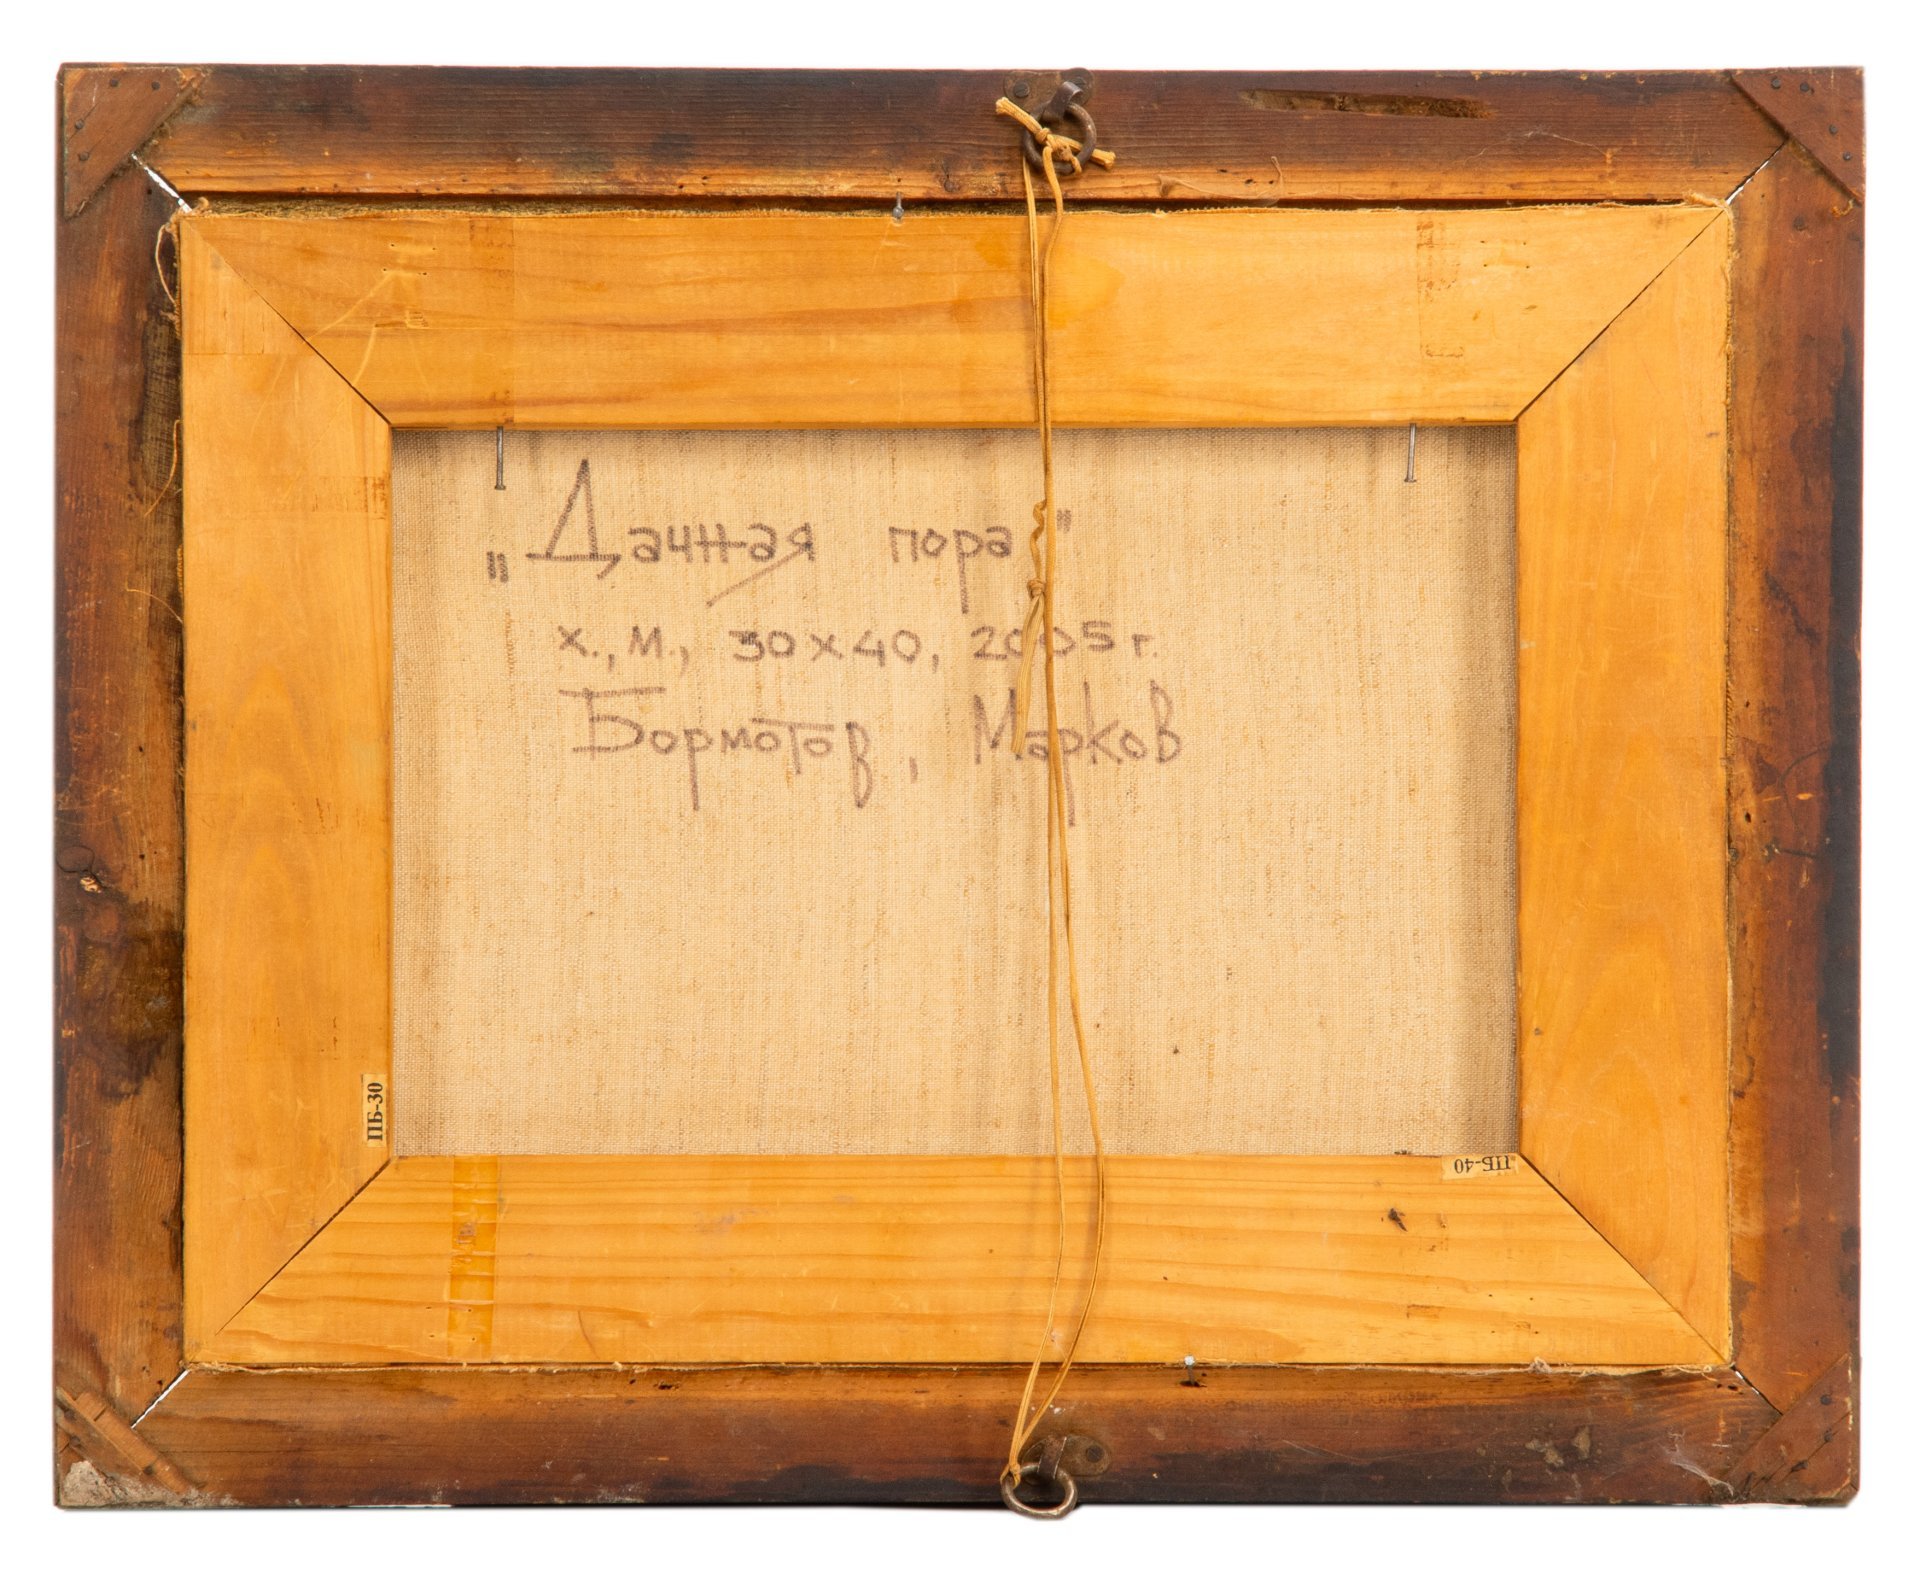 „Дачная пора"
х., м., 30х40, 2005 г.
Бормотов, Марков
ПБ-30
ПБ-40